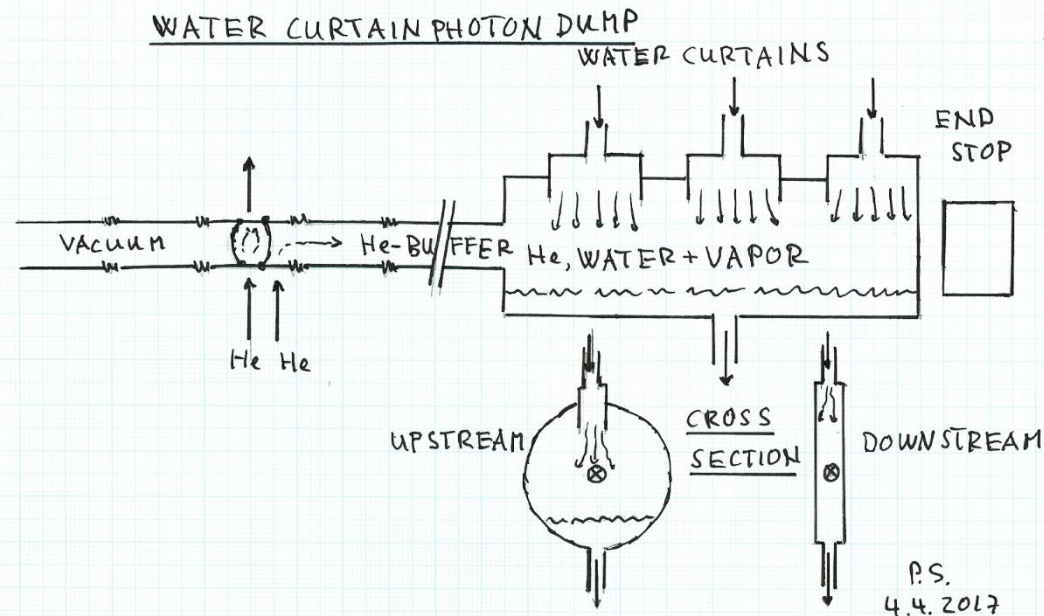 WATER CURTAIN PHOTON DUMP
WATER CURTAINS
END
STOP
VACUUM
He-BUFFER
He, WATER + VAPOR
He He
UPSTREAM
CROSS
SECTION
DOWNSTREAM
P.S.
4.4.2017